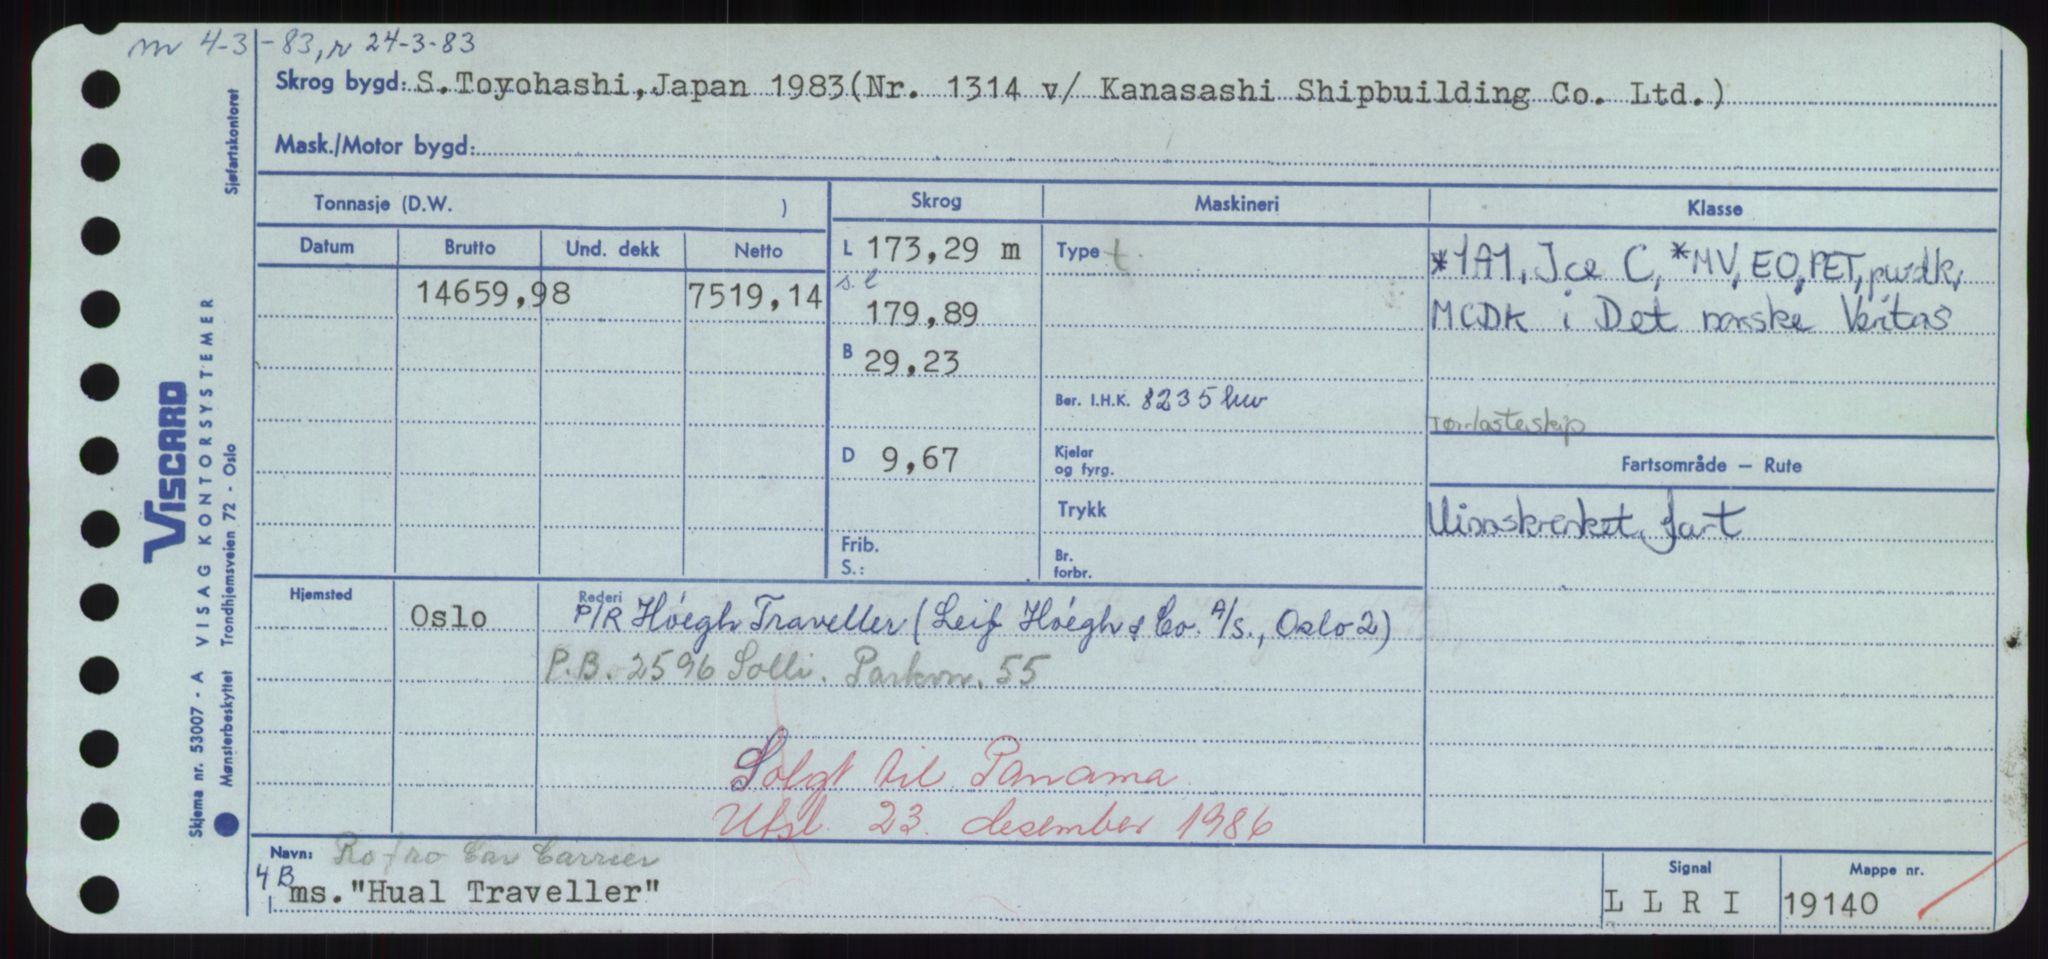 m 4-3-83, r 24-3-83
Skrog bygd: S.Toyohashi, Japan 1983(Nr. 1314 v/ Kanasashi Shipbuilding Co. Ltd.)
Mask./Motor bygd:
Tonnasje (D.W. )
Datum Brutto Und. dekk Netto
14659,98 7519,14
Skrog
L 173,29 m
s.l
179,89
B 29,23
D 9,67
Frib.
S.:
Maskineri
Type t.
Ber. I.H.K. 8235 hw
Kjelar
og fyrg.
Trykk
Br.
forbr.
Klasse
*1A1, Ice C, *MV, EO, PET, pwdk,
MCDK i Det norske Veritas
Tørrlasteskip
Fartsområde — Rute
Uinnskrenket fart
Hjemsted Oslo
Rederi
P/R Höegh Traveller (Leif Höegh & Co. A/S., Oslo 2)
P.B. 2596 Solli. Parkvn. 55
Solgt til Panama
Utsl. 23. desember 1986
Navn: Ro/ro Car Carrier
4B
ms."Hual Traveller"
Signal
L L R I
Mappe nr.
19140
Sjøfartskontoret
VISCARD
VISAG KONTORSYSTEMER
Trondhjemsveien 72 - Oslo
Skjema nr. 53007 - A
Mønsterbeskyttet